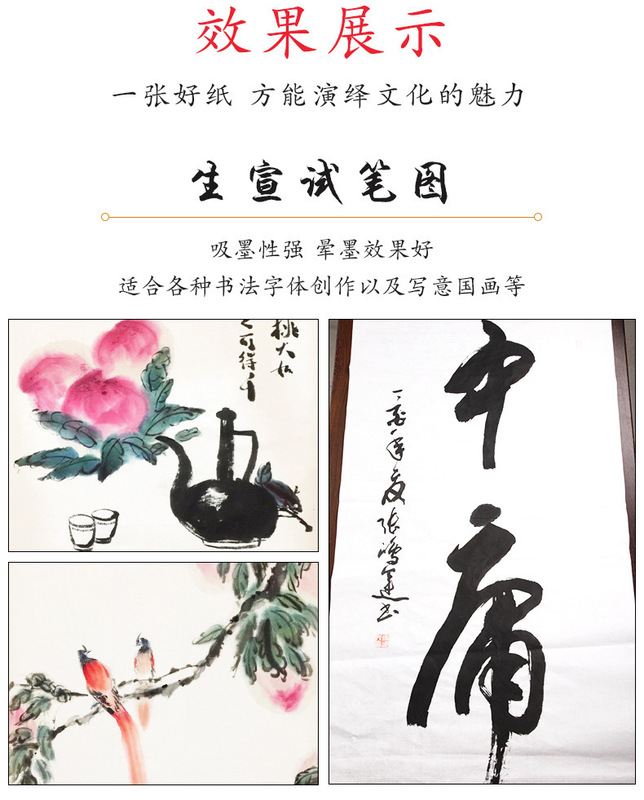 效果展示
一张好纸 方能演绎文化的魅力
生宣试笔图
吸墨性强 晕墨效果好
适合各种书法字体创作以及写意国画等
中庸